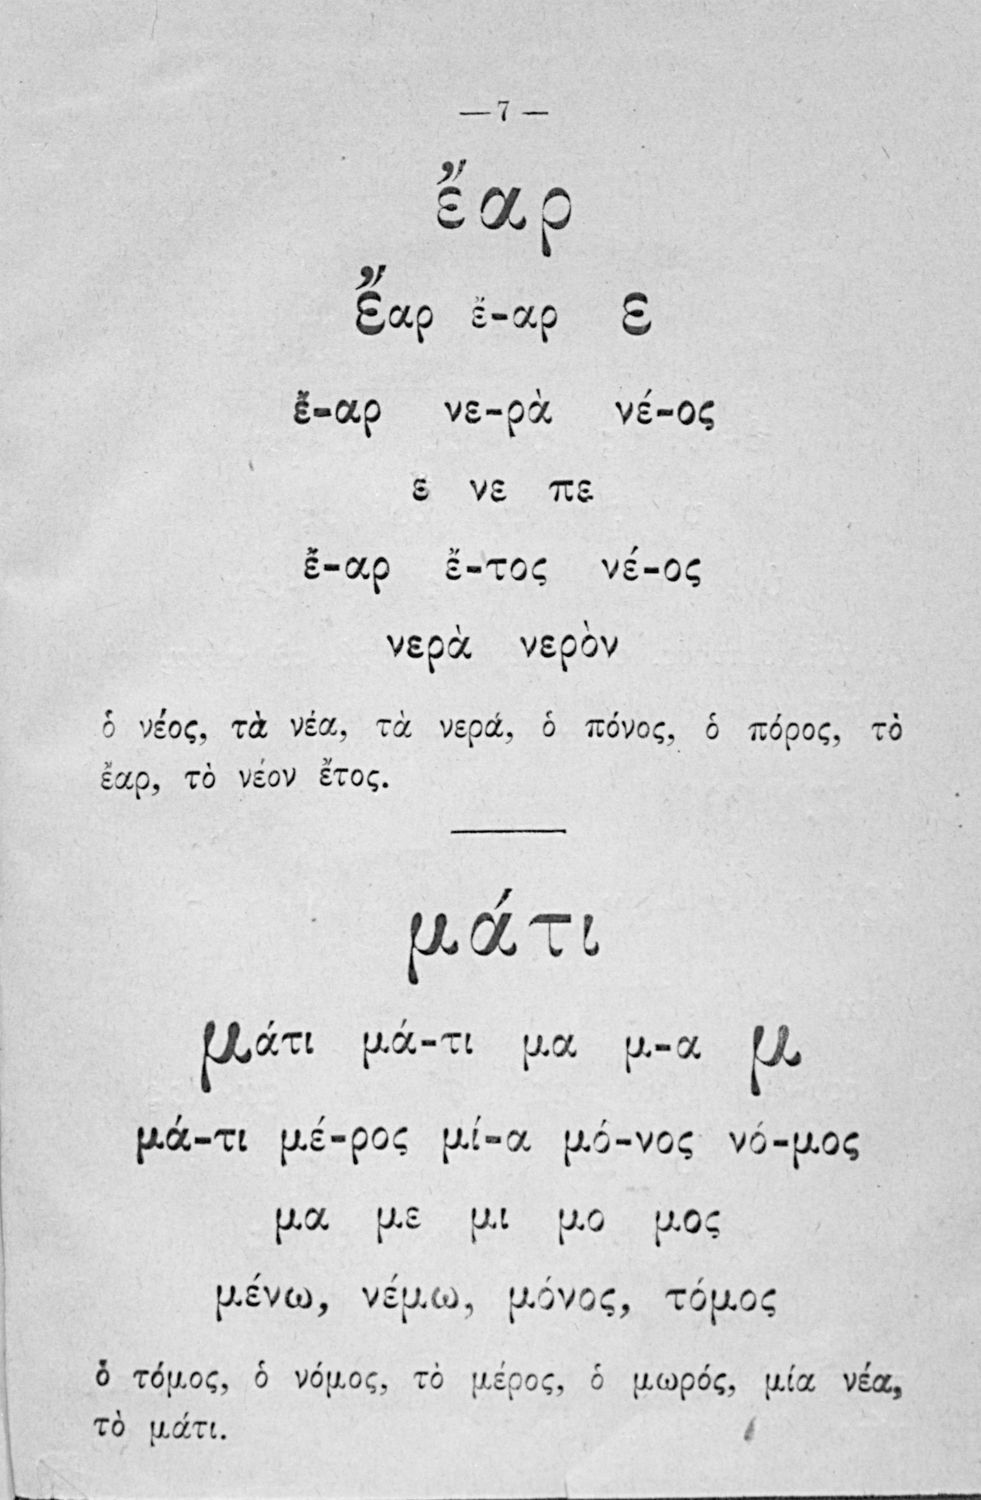 — 7 —
ἔαρ
ἔαρ ἔ-αρ ε
ἔ-αρ νε-ρὰ νέ-ος
ε νε πε
ἔ-αρ ἔ-τος νέ-ος
νερὰ νερὸν
ὁ νέος, τὰ νέα, τὰ νερά, ὁ πόνος, ὁ πόρος, τὸ
ἔαρ, τὸ νέον ἔτος.
μάτι
μάτι μά-τι μα μ-α μ
μά-τι μέ-ρος μί-α μό-νος νό-μος
μα με μι μο μος
μένω, νέμω, μόνος, τόμος
ὁ τόμος, ὁ νόμος, τὸ μέρος, ὁ μωρός, μία νέα,
τὸ μάτι.